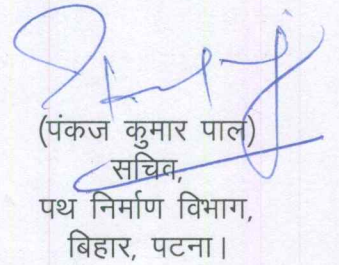 (पंकज कुमार पाल)
सचिव,
पथ निर्माण विभाग,
बिहार, पटना।